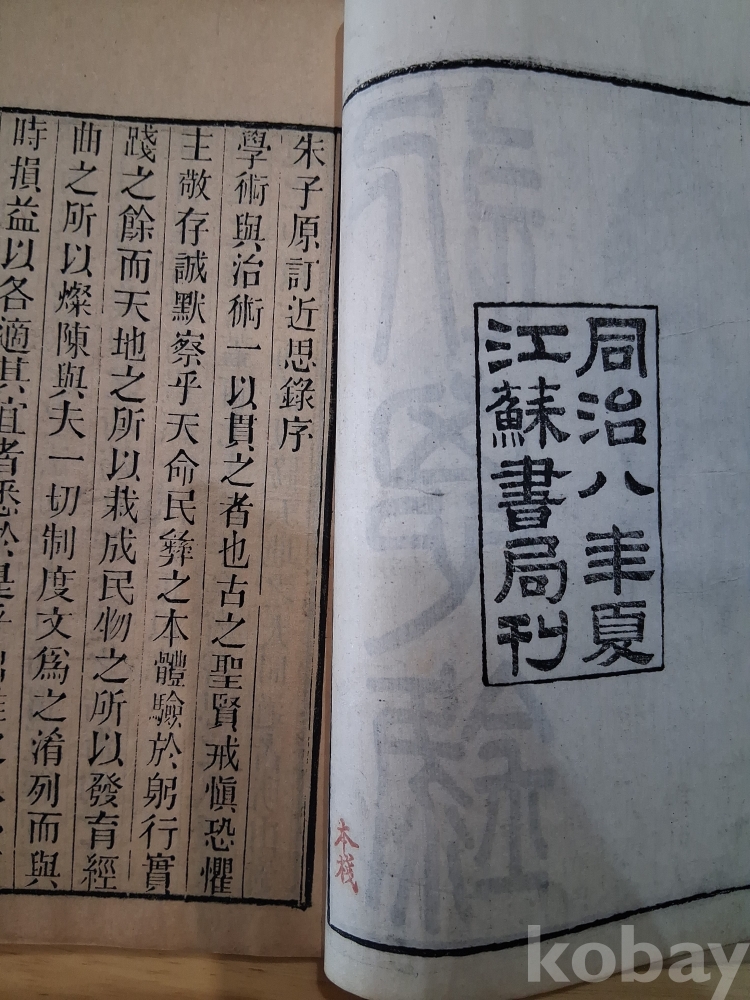 同治八年夏
江蘇書局刊
本棧
朱子原訂近思錄序
學術與治術一以貫之者也古之聖賢戒慎恐懼
主敬存誠默察乎天命民彝之本體驗於躬行實
踐之餘而天地之所以栽成民物之所以發育經
曲之所以燦陳與夫一切制度文為之淆列而與
時損益以各適其宜者悉於是乎
kobay